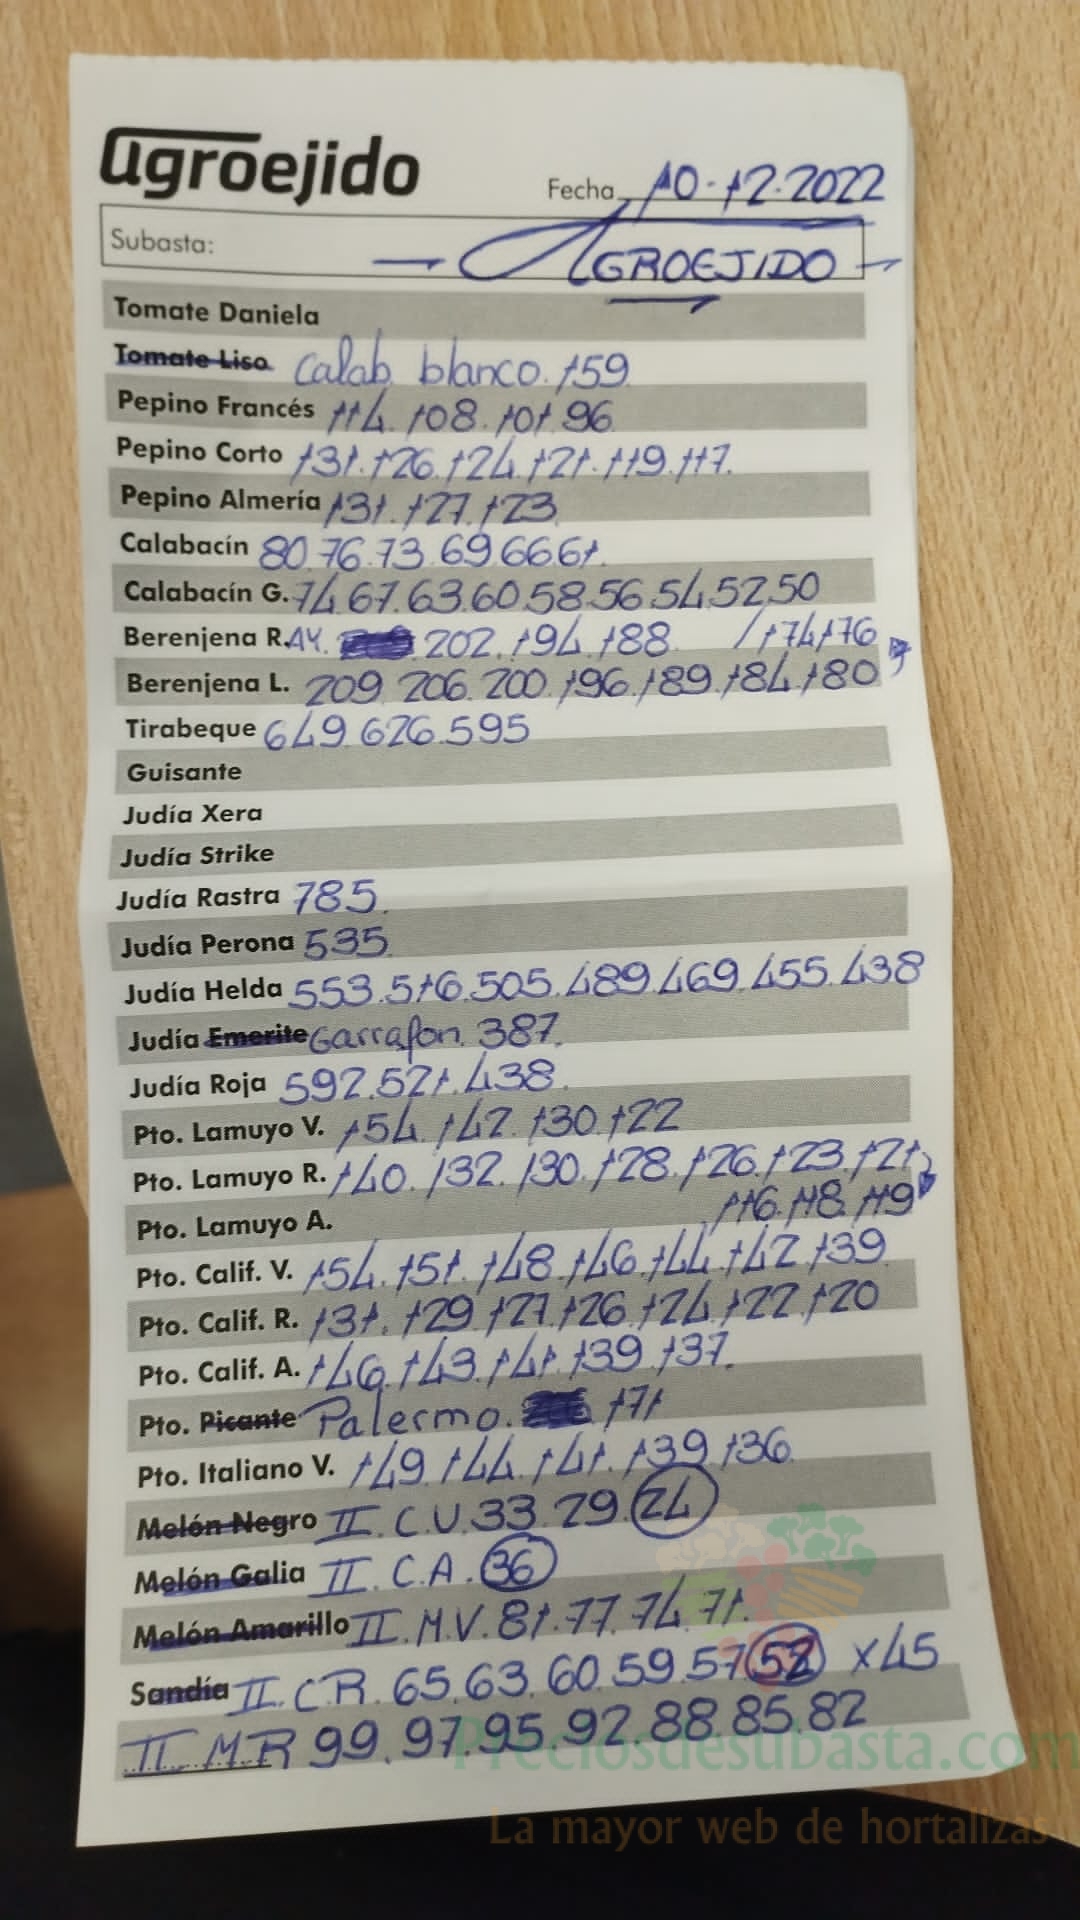 agroejido
Fecha 10-12-2022
Subasta: AGROEJIDO
Tomate Daniela
Tomate Liso Calab. blanco. 159
Pepino Francés 114. 108. 101. 96
Pepino Corto 131. 126. 124. 121. 119. 117.
Pepino Almería 131. 127. 123
Calabacín 80. 76. 73. 69 66 61.
Calabacín G. 74. 67. 63. 60. 58. 56. 54. 52. 50
Berenjena R. AY. 202. 194. 188 / 174 176
Berenjena L. 209. 206. 200. 196. 189. 184. 180
Tirabeque 649. 626. 595
Guisante
Judía Xera
Judía Strike
Judía Rastra 785.
Judía Perona 535
Judía Helda 553. 516. 505. 489. 469. 455. 438
Judía Emerite Garrafon. 387.
Judía Roja 592. 521. 438.
Pto. Lamuyo V. 154. 147. 130. 122
Pto. Lamuyo R. 140. 132. 130. 128. 126. 123. 121
Pto. Lamuyo A. 116. 118. 119
Pto. Calif. V. 154. 151. 148. 146. 144. 142. 139
Pto. Calif. R. 131. 129. 127. 126. 124. 122. 120
Pto. Calif. A. 146. 143. 141. 139. 137.
Pto. Picante Palermo. 171
Pto. Italiano V. 149. 144. 141. 139. 136.
Melón Negro II. C.V. 33. 29. 24
Melón Galia II. C.A. 36
Melón Amarillo II. M.V. 81. 77. 74. 71.
Sandía II. C.R. 65. 63. 60. 59. 57. 52 x45
II M R 99. 97. 95. 92. 88. 85. 82
Preciosdesubasta.com
La mayor web de hortalizas